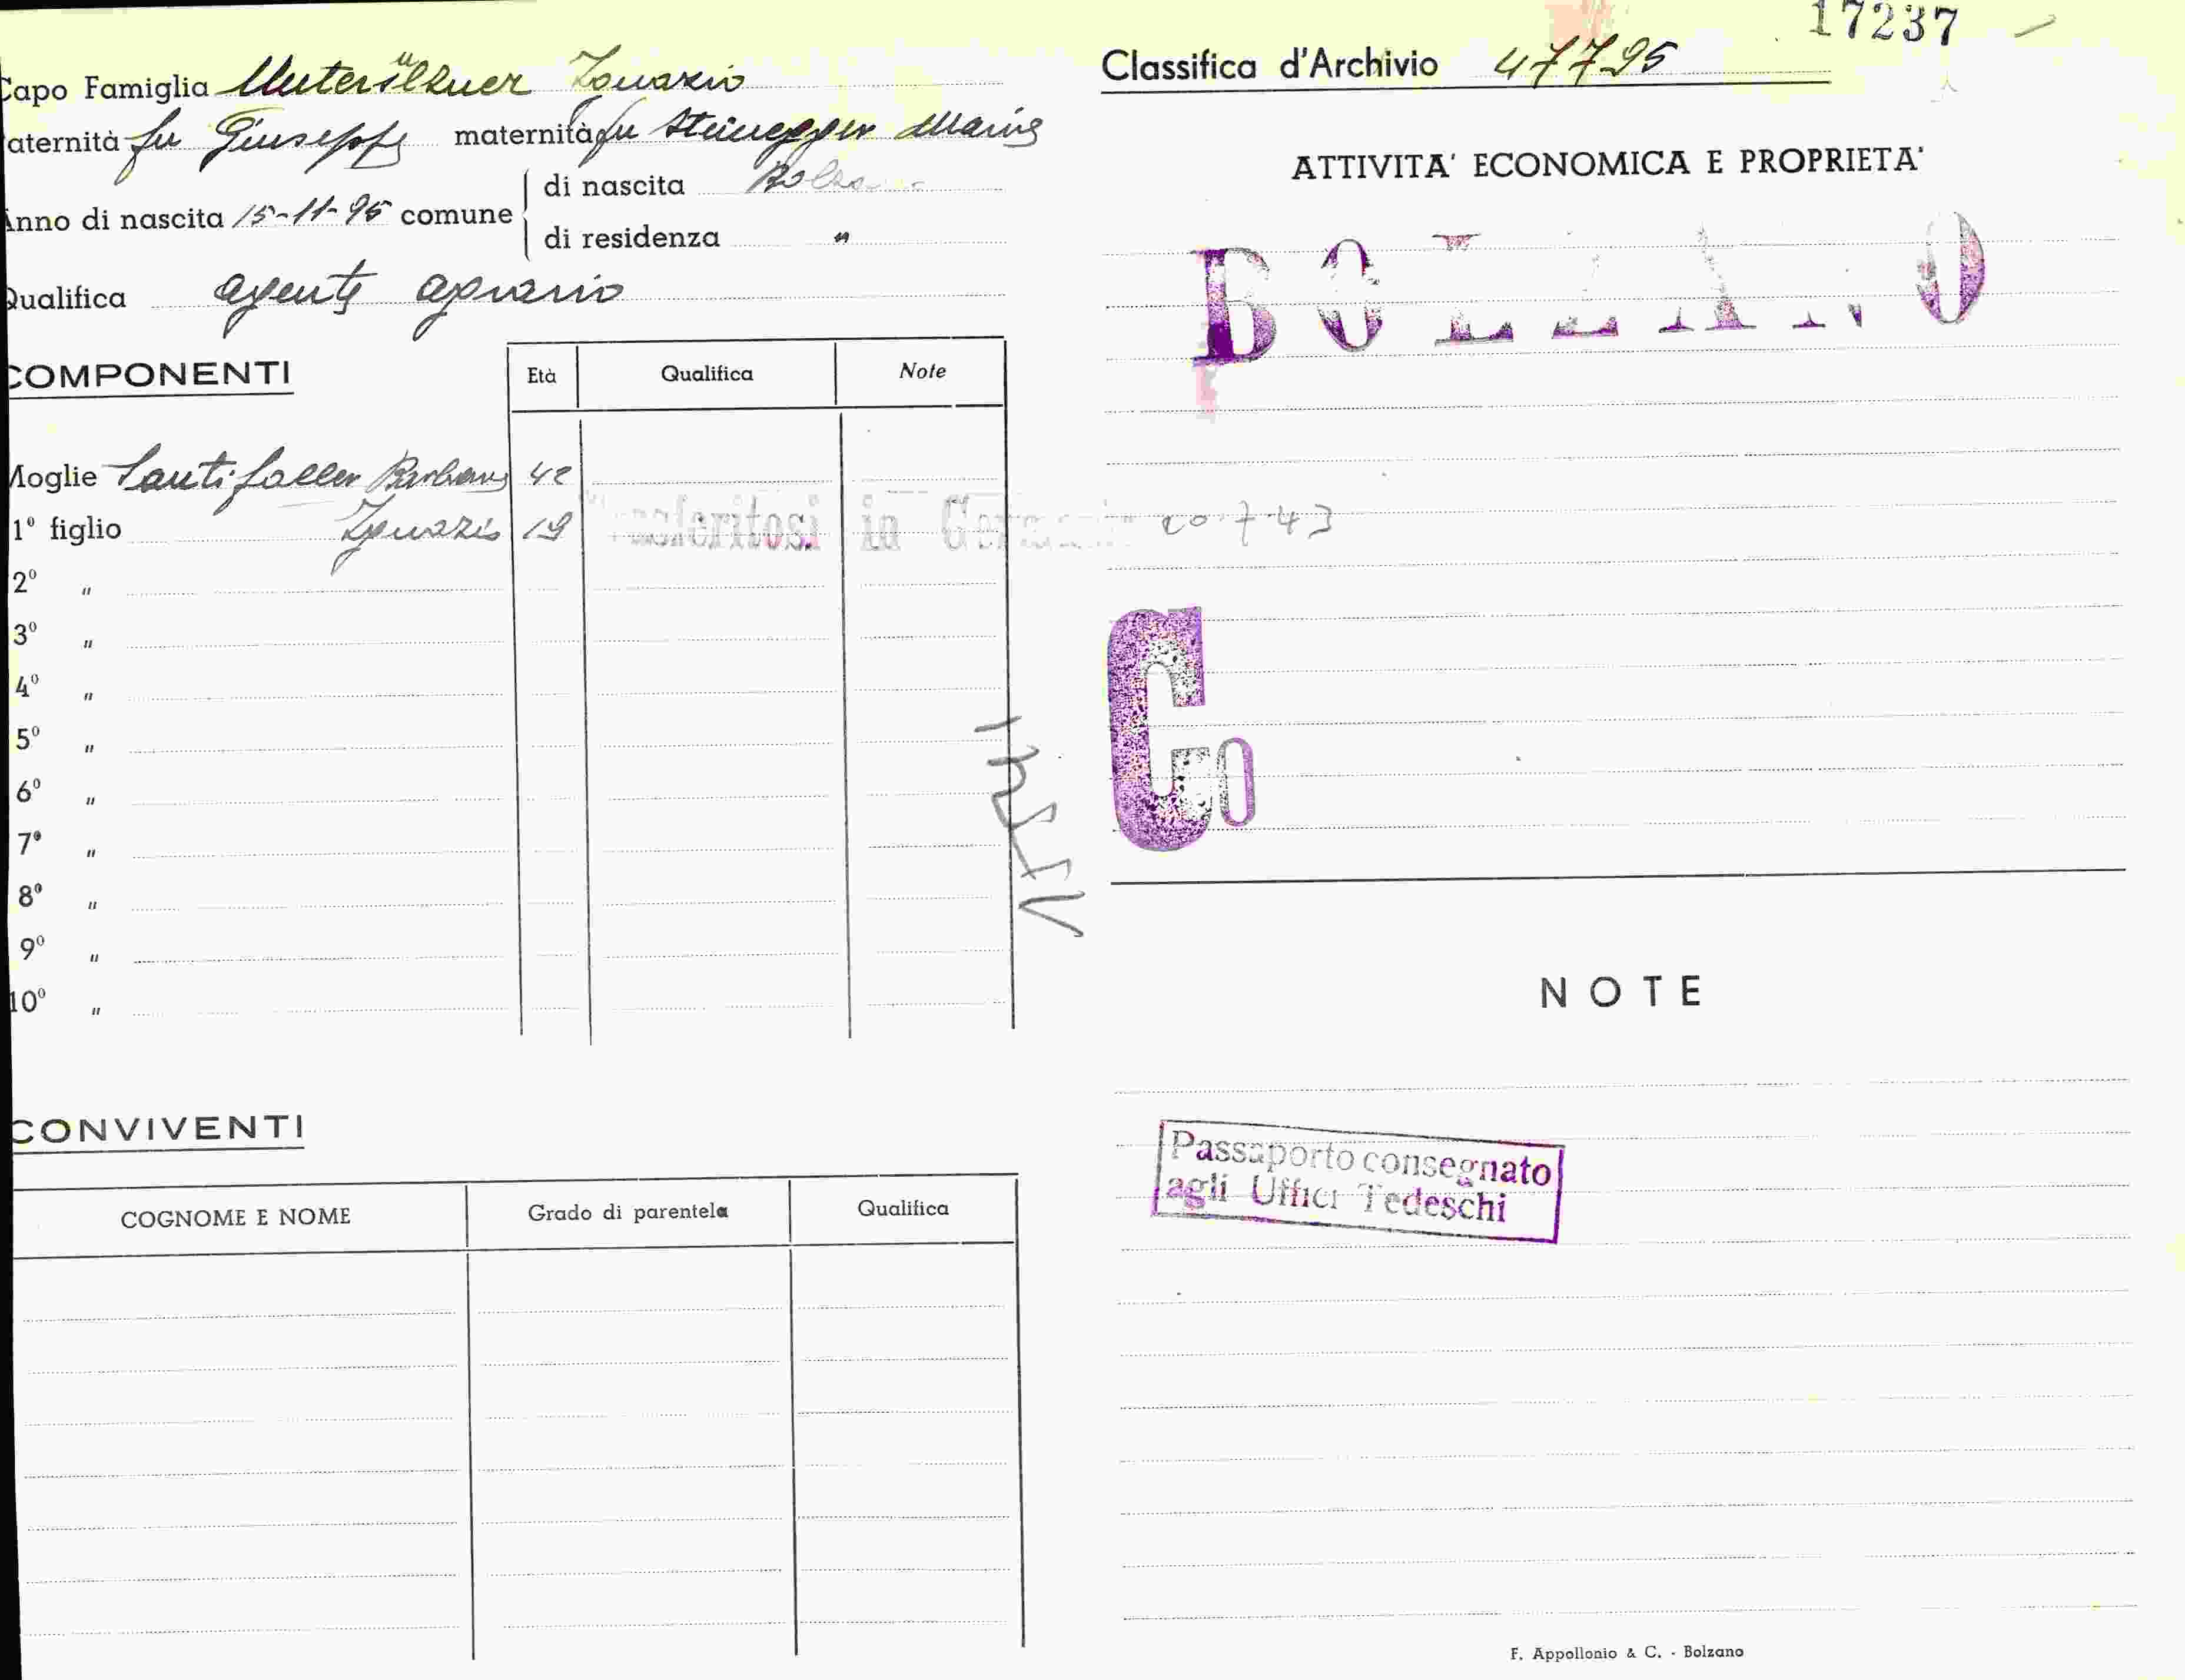 17237
Classifica d'Archivio 47795
Capo Famiglia Ignazio
aternità fu Giuseppe maternità fu Steinegger Maria
Anno di nascita 15-11-95 comune
di nascita Bolzano
di residenza "
Qualifica agente agrario
COMPONENTI
Età Qualifica Note
Moglie Santifaller Barbara 42
1º figlio Ignazio 19 Trasferitosi in Germania 20-7-43
2º "
3º "
4º "
5º "
6º "
7º "
8º "
9º "
10º "
CONVIVENTI
COGNOME E NOME Grado di parentela Qualifica
ATTIVITA' ECONOMICA E PROPRIETA'
BOLZANO
Go
NOTE
Passaporto consegnato
agli Uffici Tedeschi
F. Appollonio & C. - Bolzano